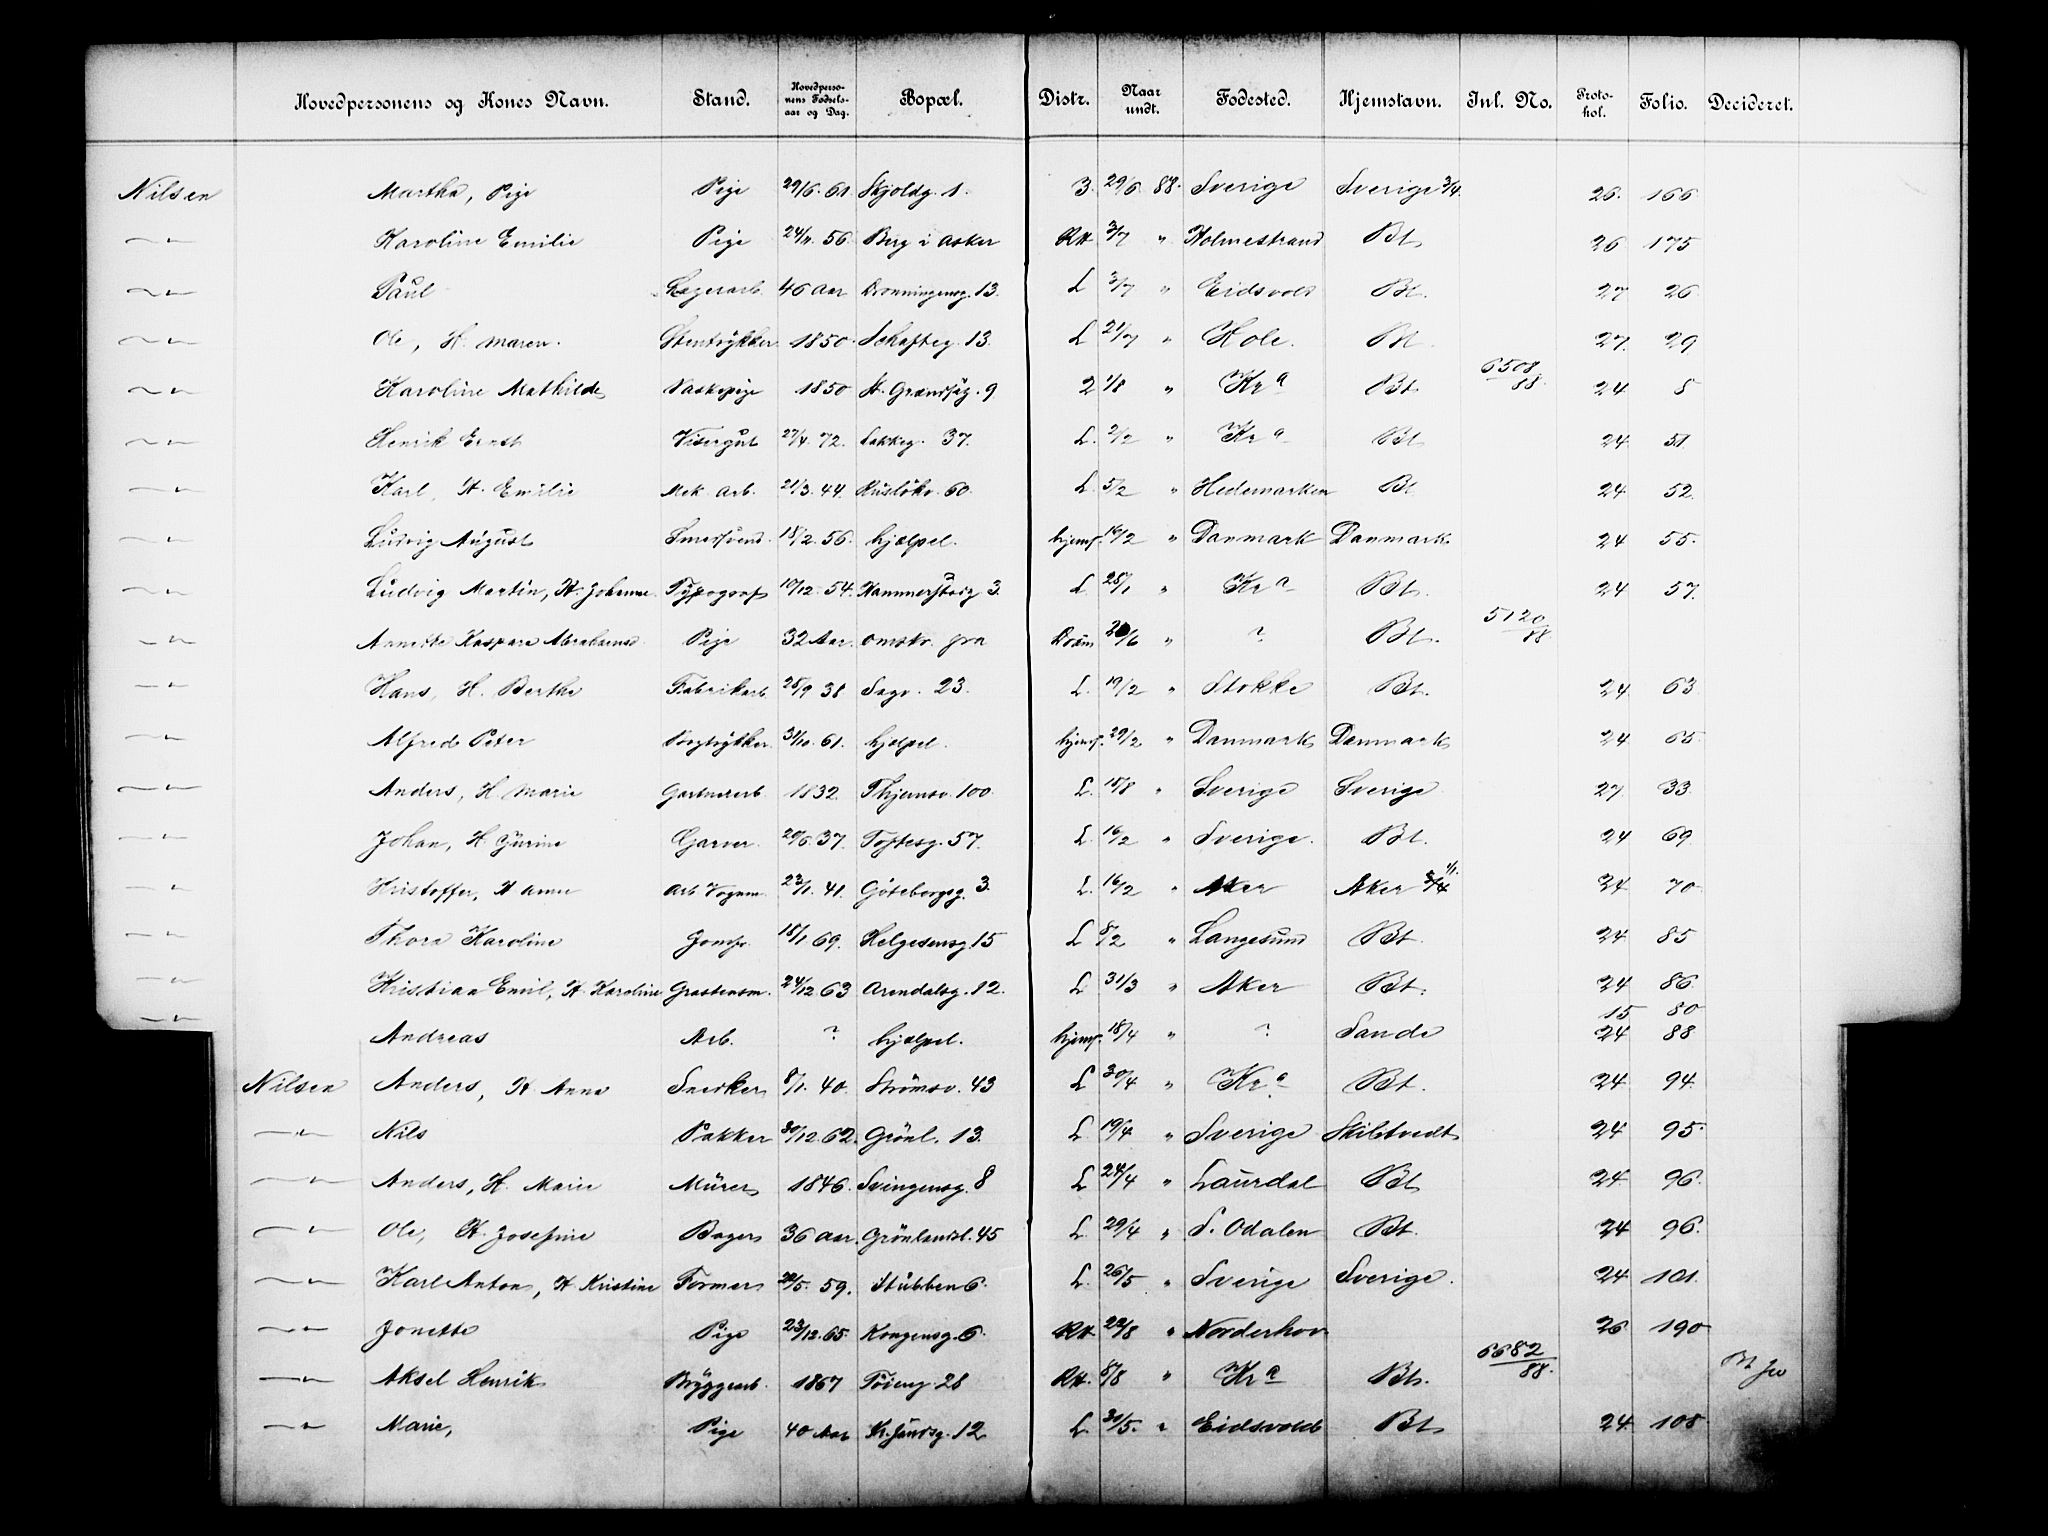 Hovedpersonens og Kones Navn. Stand. Hovedpersonens Fødselsaar og Dag. Bopæl. Distr. Naar undt. Fødested. Hjemstavn. Inl. No. Protokol. Folio. Decideret.
Nilsen Martha, Pige Pige 29/6. 61 Skjoldg. 1. 3. 29/6 88. Sverige Sverige 3/4. 26. 166
—„— Karoline Emilie Pige 56 Berg i Asker 3/7 „ Holmestrand Bt. 26 175
—„— Paul Lagerarb. 46 Aar Dronningensg. 13. L 3/7 „ Eidsvold Bt. 27 26
—„— Ole, H. Maren. Stentrykker 1850 Schafteg. 13. L 21/7 „ Hole. Bt. 27. 29
—„— Karoline Mathilde Vaskepige 1850 St. Grændsg. 9 2 1/8 „ Kra Bt 6508/88. 24 8
—„— Henrik Ernst Visergut 27/4. 72. Lakkeg. 37. L. 2/2 „ Kra Bt 24 51
—„— Karl, H. Emilie Mek. Arb. 21/3. 44. Ruslökv. 60. L. 5/2 „ Hedemarken Bt 24 52.
—„— Ludvig August Smedsvend. 18/2. 56. hjælpel. hjemf. 16/2 „ Danmark Danmark 24 55.
—„— Ludvig Martin, H. Johanne Typograf 10/12. 54. Hammerstadg 3. L 28/1 „ Kra Bt. 24 57.
—„— Annette Kaspara Abrahamsd. Pige 32 Aar. omstr. fra Dram 20/6 „ ? Bt. 5120/88
—„— Hans, H. Berthe Fabrikarb. 28/9 38 Sagv. 23. L. 19/2 „ Stokke Bt. 24. 63
—„— Alfred Peter Bogtrykker. 31/10. 61. hjælpel. hjemf. 29/2 „ Danmark Danmark 24 65.
—„— Anders, H. Marie Gartnerarb. 1832. Thjemsv. 100. L. 18/8 „ Sverige Sverige 27. 33.
—„— Johan, H. Gurine Garver. 29/6. 37. Toftesg. 57. L. 16/2 „ Sverige. Bt. 24 69.
—„— Kristoffer, H Anne Arb. Vognm. 23/1. 41. Göteborgsg. 3. L. 16/2 „ Aker Aker 24 70.
—„— Thora Karoline Jomfr. 18/1 69. Helgesensg. 15 L 8/2 „ Langesund Bt. 24 85
—„— Kristian Emil, H. Karoline Grostensm. 24/12 63 Arendalsg. 12. L 31/3 „ Aker Bt. 24 86.
15 80
—„— Andreas Arb. ? hjælpel. hjemf. 18/4 „ ? Sande 24 88
Nilsen Anders, H. Anna Snedker 8/1. 40. Strömsv. 43 L 30/4 „ Kra Bt. 24 94.
—„— Nils Pakker 30/12. 62. Grönl. 13. L. 19/4 „ Sverige Skibtvedt 24 95.
—„— Anders, H. Marie Murer 1846. Svingensg. 8 L 24/4 „ Laurdal Bt 24. 96.
—„— Ole, H. Josefine Bager 36 Aar. Grönlandsl. 45 L. 29/4 „ S. Odalen Bt. 24 96.
—„— Karl Anton, H Kristine Former 59. Stubben 6. L. 26/5 „ Sverige Sverige. 24 101.
—„— Jonette Pige 23/12. 65. Kongensg. 6. 22/8 „ Norderhov 26 190
—„— Aksel Henrik Bryggearb. 1867 Töieng. 28 8/8 „ Kra Bt. 6682/88.
—„— Marie, Pige 40 Aar Kr. Sundsg. 12 L. 31/5. „ Eidsvold Bt 24. 108